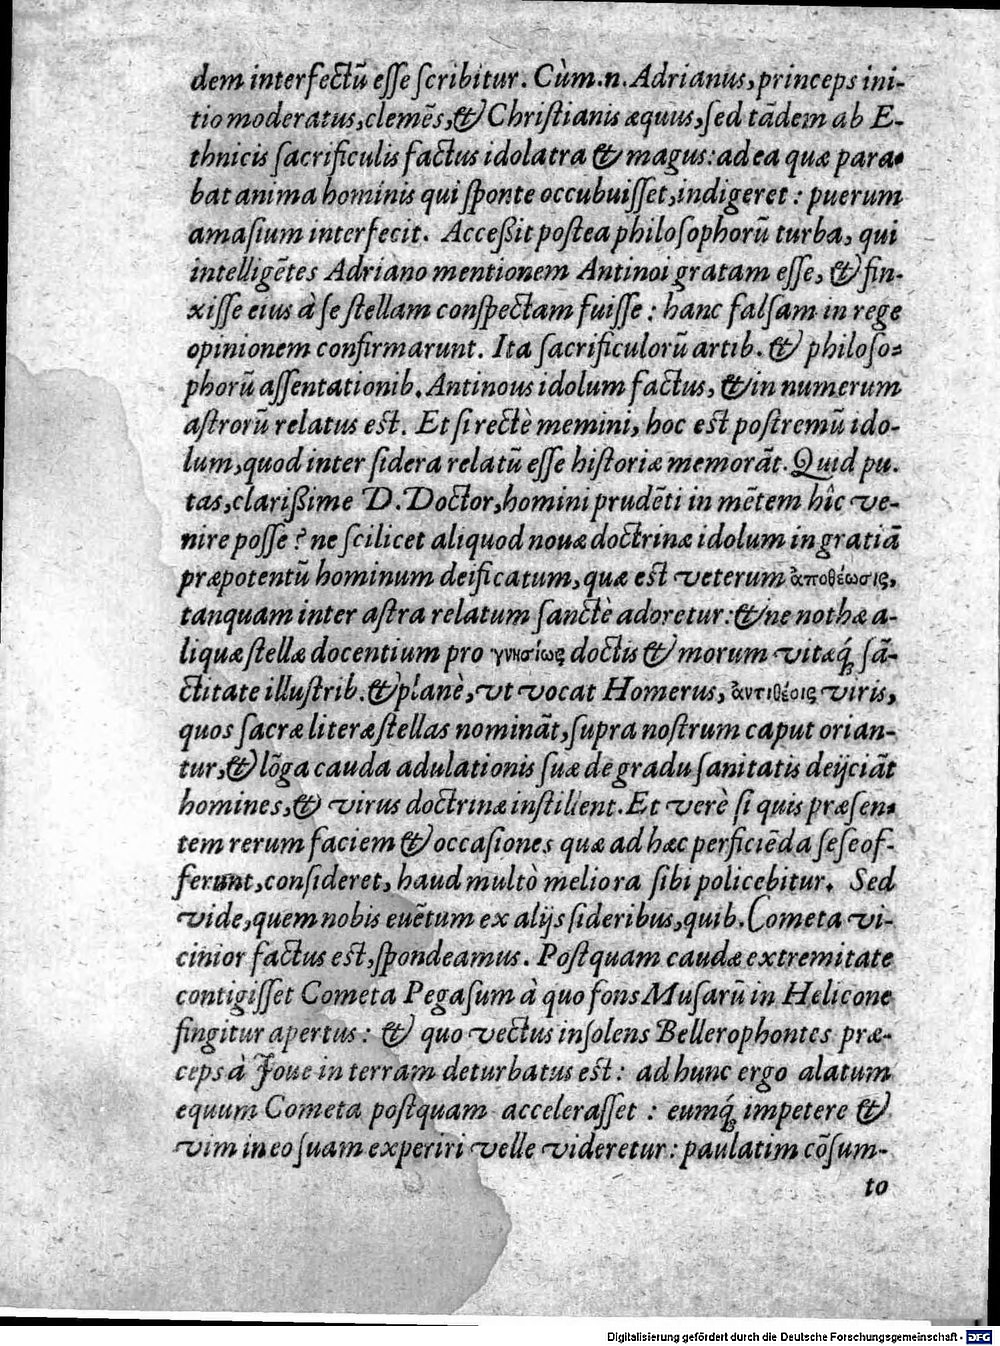 dem interfectũ esse scribitur. Cùm.n. Adrianus, princeps ini-
tio moderatus, clemẽs, & Christianis æquus, sed tãdem ab E-
thnicis sacrificulis factus idolatra & magus: ad ea quæ para-
bat anima hominis qui sponte occubuisset, indigeret: puerum
amasium interfecit. Acceßit postea philosophorũ turba, qui
intelligẽtes Adriano mentionem Antinoi gratam esse, & fin-
xisse eius à se stellam conspectam fuisse: hanc falsam in rege
opinionem confirmarunt. Ita sacrificulorũ artib. & philoso-
phorũ assentationib. Antinous idolum factus, & in numerum
astrorũ relatus est. Et si rectè memini, hoc est postremũ ido-
lum, quod inter sidera relatũ esse historiæ memorãt. Quid pu-
tas, clarißime D. Doctor, homini prudẽti in mẽtem hîc ve-
nire posse? ne scilicet aliquod nouæ doctrinæ idolum in gratiã
præpotentũ hominum deificatum, quæ est veterum ἀποθέωσις,
tanquam inter astra relatum sanctè adoretur: & ne nothæ a-
liquæ stellæ docentium pro γνησίως doctis & morum vitæq́; sã-
ctitate illustrib. & planè, vt vocat Homerus, ἀντιθέοις viris,
quos sacræ literæ stellas nominãt, supra nostrum caput orian-
tur, & lõga cauda adulationis suæ de gradu sanitatis deijciãt
homines, & virus doctrinæ instillent. Et verè si quis præsen-
tem rerum faciem & occasiones quæ ad hæc perficiẽda sese of-
ferunt, consideret, haud multò meliora sibi policebitur. Sed
vide, quem nobis euẽtum ex alijs sideribus, quib. Cometa vi-
cinior factus est, spondeamus. Postquam caudæ extremitate
contigisset Cometa Pegasum à quo fons Musarũ in Helicone
fingitur apertus: & quo vectus insolens Bellerophontes præ-
ceps à Joue in terram deturbatus est: ad hunc ergo alatum
equum Cometa postquam accelerasset: eumq́; impetere &
vim in eo suam experiri velle videretur: paulatim cõsum-
to
Digitalisierung gefördert durch die Deutsche Forschungsgemeinschaft - DFG